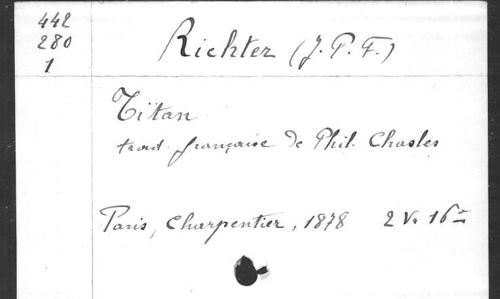 442
280
1
Richter (J. P. F.)
Titan
trad. française de Phil. Chasles
Paris, Charpentier, 1878 2 V. 16º